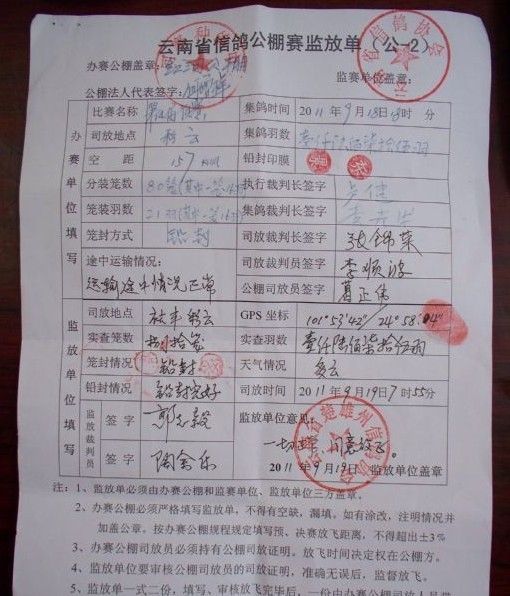 云南省信鸽公棚赛监放单（公-2）
办赛公棚盖章：
监赛单位盖章：
公棚法人代表签字：
办赛单位填写
比赛名称
集鸽时间 2011年9月18日18时 分
司放地点
集鸽羽数 壹仟陆佰柒拾伍羽
空 距 157
铅封印膜
分装笼数 80笼
执行裁判长签字
笼装羽数 21羽
集鸽裁判长签字
笼封方式 铅封
司放裁判长签字 张锦荣
途中运输情况：
司放裁判员签字 李顺
运输途中情况正常
公棚司放员签字 葛正伟
监放单位填写
司放地点
GPS 坐标 101°53′42″/24°58′04″
实查笼数 捌拾笼
实查羽数 壹仟陆佰柒拾伍羽
笼封情况 铅封
天气情况 多云
铅封情况 铅封完好
司放时间 2011年9月19日7时55分
监放裁判员
签 字
监放单位意见：
一切正常，同意放飞。
签 字
2011年9月19日 监放单位盖章
云南省楚雄州信鸽协会
注：1、监放单必须由办赛公棚和监赛单位、监放单位三方盖章。
2、办赛公棚必须严格填写监放单，不得有空缺，漏填。如有涂改，注明情况并
加盖公章。按办赛公棚规程规定填写预、决赛放飞距离，不得超出±3%
3、办赛公棚司放员必须持有公棚司放证明。放飞时间决定权在公棚方。
4、监放单位要审核公棚司放员的司放证明，准确无误后，监督放飞。
5、监放单一式二份，填写、审核放飞完毕后，一份由办赛公棚司放人员带